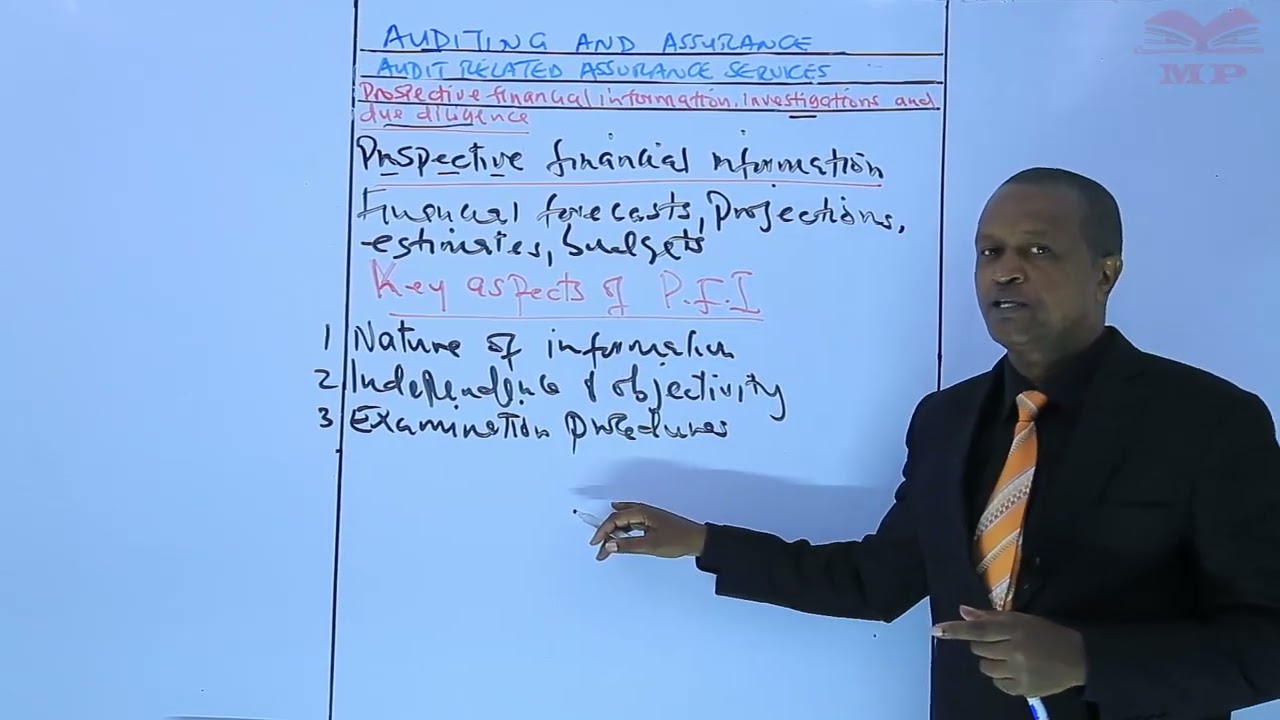 AUDITING AND ASSURANCE
AUDIT RELATED ASSURANCE SERVICES
Prospective financial information, investigations and
due diligence
Prospective financial information
Financial forecasts, Projections,
estimates, budgets
Key aspects of P.F.I
1 Nature of information
2 Independence & objectivity
3 Examination procedures
MP